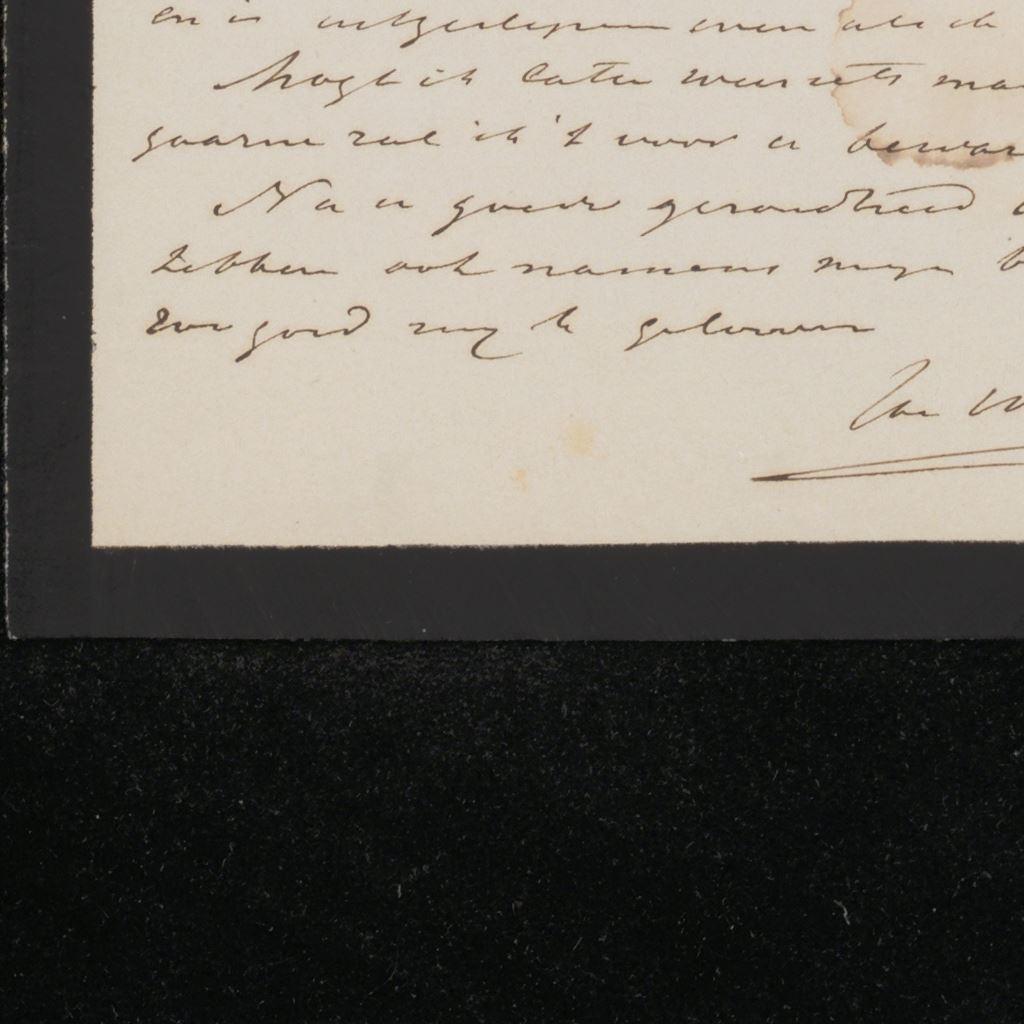 en is uitgeslepen even als ik
Mogt ik later weer iets ma
gaarne zal ik 't voor u bewar
Na u goede gezondheid
hebben ook namens myn b
zoo goed my te gelooven
Jan W